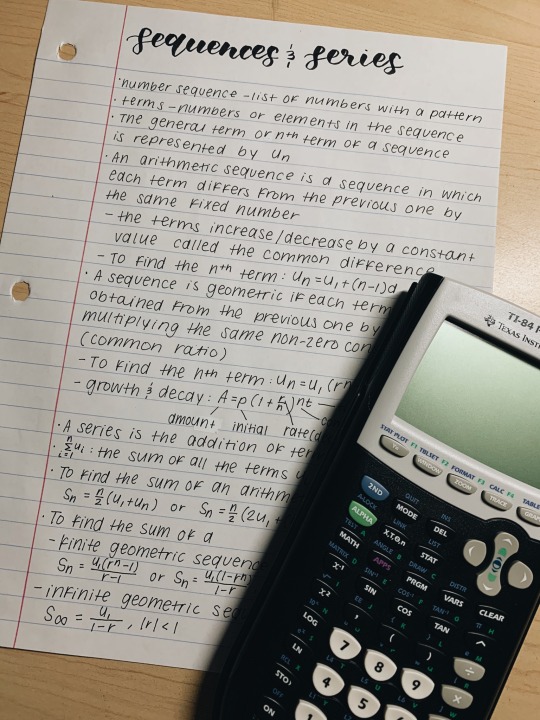 sequences & series
·number sequence - list of numbers with a pattern
·terms - numbers or elements in the sequence
·The general term or nth term of a sequence
is represented by un
·An arithmetic sequence is a sequence in which
each term differs from the previous one by
the same fixed number
- the terms increase/decrease by a constant
value called the common difference
- To find the nth term: un = u1 + (n-1)d
·A sequence is geometric if each term
obtained from the previous one by
multiplying the same non-zero con
(common ratio)
- To find the nth term: un = u1 (rn
- growth & decay: A = p(1 + r/n)nt
amount initial rate
·A series is the addition of ter
·n∑i=1 ui: the sum of all the terms
·To find the sum of an arithm
Sn = n/2 (u1 + un) or Sn = n/2 (2u1 +
·To find the sum of a
- finite geometric sequenc
Sn = u1(rn-1)/r-1 or Sn = u1(1-rn)/1-r
- infinite geometric se
S∞ = u1/1-r, |r| < 1
TI-84 P
TEXAS INST
STAT PLOT F1 TBLSET F2 FORMAT F3 CALC F4 TABLE
Y= WINDOW ZOOM TRACE GRAPH
2ND QUIT INS
MODE DEL
A-LOCK LINK LIST
ALPHA X,T,θ,n STAT
TEST A ANGLE B DRAW C DISTR
MATH APPS PRGM VARS CLEAR
MATRIX D SIN-1 E COS-1 F TAN-1 G π H
x-1 SIN COS TAN ^
x2 , ( ) ÷
LOG 7 8 9 ×
LN 4 5
RCL X
STO› 1
OFF
ON